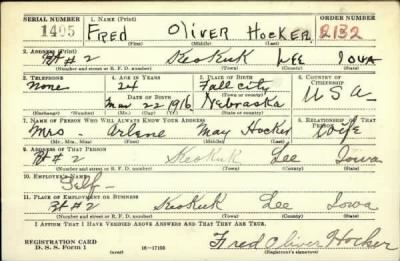 SERIAL NUMBER 1. NAME (Print) ORDER NUMBER
1405 FRED OLIVER HOCKER 2132
(First) (Middle) (Last)
2. ADDRESS (Print)
Rt # 2 KeoKuk LEE Iowa
(Number and street or R. F. D. number) (Town) (County) (State)
3. TELEPHONE 4. AGE IN YEARS 5. PLACE OF BIRTH 6. COUNTRY OF CITIZENSHIP
None 24 Fall city
DATE OF BIRTH (Town or county)
Mar 22 1916 Nebraska U S A
(Exchange) (Number) (Mo.) (Day) (Yr.) (State or country)
7. NAME OF PERSON WHO WILL ALWAYS KNOW YOUR ADDRESS 8. RELATIONSHIP OF THAT PERSON
Mrs. Arlene May Hocker Wife
(Mr., Mrs., Miss) (First) (Middle) (Last)
9. ADDRESS OF THAT PERSON
Rt # 2 KeoKuk Lee Iowa
(Number and street or R. F. D. number) (Town) (County) (State)
10. EMPLOYER'S NAME
Self
11. PLACE OF EMPLOYMENT OR BUSINESS
Rt # 2 KeoKuk Lee Iowa
(Number and street or R. F. D. number) (Town) (County) (State)
I AFFIRM THAT I HAVE VERIFIED ABOVE ANSWERS AND THAT THEY ARE TRUE.
REGISTRATION CARD
D. S. S. Form 1 (over) 16-17105 Fred Oliver Hocker
(Registrant's signature)